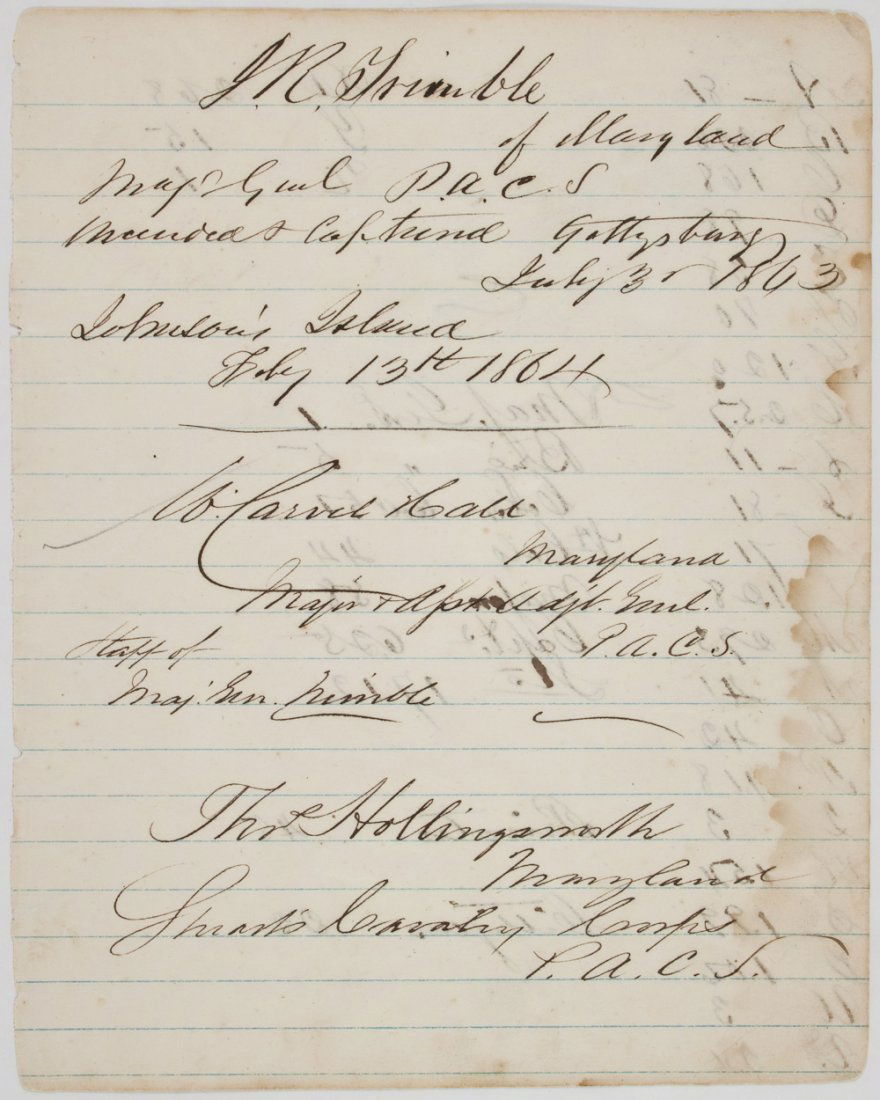 I. R. Trimble
of Maryland
Maj' Genl P. A. C. S
Wounded & Captured Gettysburg
July 3d 1863
Johnson's Island
Feby 13th 1864
W. Carvel Hall
Maryland
Major & Asst Adjt. Genl.
P. A. C. S.
Staff of
Maj. Gen. Trimble
Thos Hollingsworth
Maryland
Stuart's Cavalry Corps
P. A. C. S.